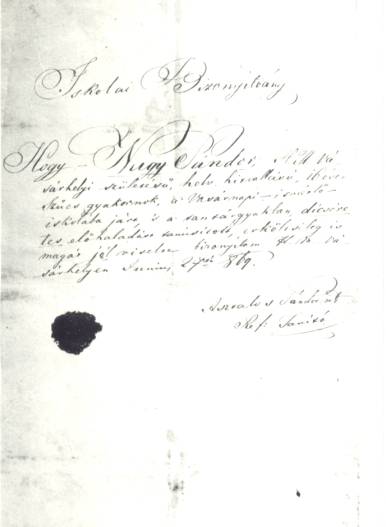 Iskolai Bizonyitvány
Hogy Nagy Sándor, H M Vá-
sárhelyi születésü, helv hitvallásu, 16 éves
Szücs gyakornok, a Vasárnapi-ismétlő-
iskolába járt és a tantárgyakban, dicsére-
tes előhaladást tanusitott, erkölcsileg is
magát jól viselte bizonyitom H M Vá-
sárhelyen Junius 27én 869.
Asztalos Sándor
Ref. Tanitó